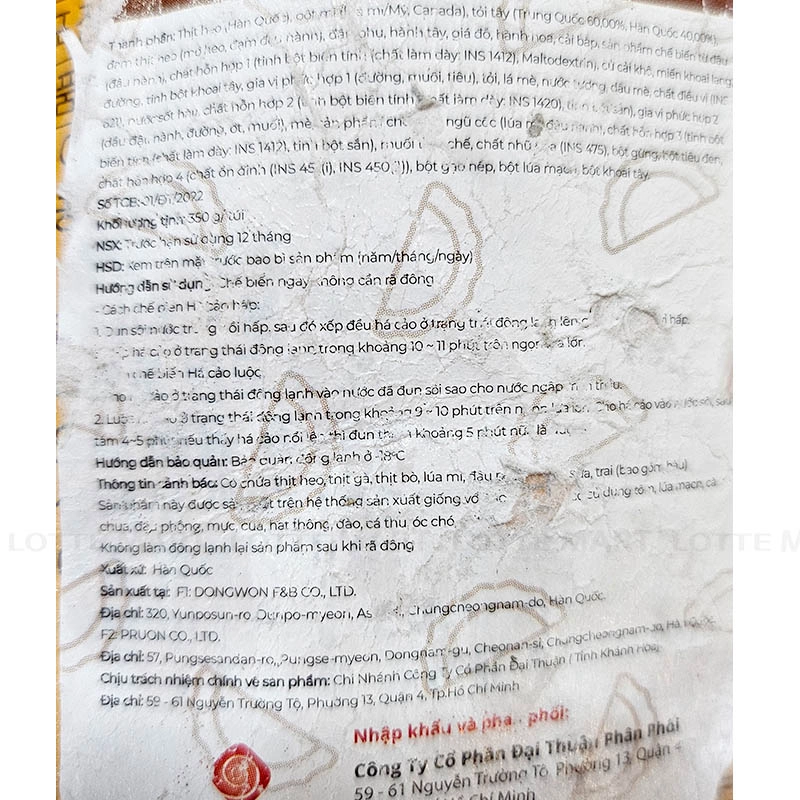 Thành phần: Thịt heo (Hàn Quốc), bột mì (Mỹ, Canada), tỏi tây (Trung Quốc 60,00%, Hàn Quốc 40,00%),
đạm thịt heo (mỡ heo, đạm đậu nành), đậu phụ, hành tây, giá đỗ, hành hoa, cải bắp, sản phẩm chế biến từ đậu
(đậu nành), chất hỗn hợp 1 (tinh bột biến tính (chất làm dày: INS 1412), Maltodextrin), củ cải khô, miến khoai lang,
đường, tinh bột khoai tây, gia vị phức hợp 1 (đường, muối, tiêu), tỏi, lá mè, nước tương, dầu mè, chất điều vị (INS
621), nước sốt hàu, chất hỗn hợp 2 (tinh bột biến tính (chất làm dày: INS 1420), sắn), gia vị phức hợp 2
(dầu đậu nành, đường, ớt, muối), mè, sản phẩm ngũ cốc (lúa mì, đậu nành), chất hỗn hợp 3 (tinh bột
biến tính (chất làm dày: INS 1412), tinh bột sắn), muối chế, chất nhũ (INS 475), bột gừng, bột tiêu đen,
chất hỗn hợp 4 (chất ổn định (INS (i), INS 450 )), bột gạo nếp, bột lúa mạch, bột khoai tây.
Số TCB: 01/DT/2022
Khối lượng tịnh: 350 g/túi
NSX: Trước hạn sử dụng 12 tháng
HSD: Xem trên mặt trước bao bì sản phẩm (năm/tháng/ngày)
Hướng dẫn sử dụng: Chế biến ngay không cần rã đông
- Cách chế biến Há cảo hấp:
1. Đun sôi nước trong nồi hấp, sau đó xếp đều há cảo ở trạng thái đông lạnh lên hấp.
há cảo ở trạng thái đông lạnh trong khoảng 10 ~ 11 phút trên ngọn lửa lớn.
chế biến Há cảo luộc
cảo ở trạng thái đông lạnh vào nước đã đun sôi sao cho nước ngập
2. Luộc ở trạng thái đông lạnh trong khoảng 9 ~ 10 phút trên ngọn lửa lớn. Cho há cảo vào nước sôi, sau
tầm 4-5 phút nếu thấy há cảo nổi lên thì đun thêm khoảng 5 phút nữa là
Hướng dẫn bảo quản: Bảo quản đông lạnh ở -18°C
Thông tin cảnh báo: Có chứa thịt heo, thịt gà, thịt bò, lúa mì, đậu sữa, trai (bao gồm hàu)
Sản phẩm này được sản xuất trên hệ thống sản xuất giống với sử dụng tôm, lúa mạch, cà
chua, đậu phộng, mực, cua, hạt thông, đào, cá thu, ốc chó
Không làm đông lạnh lại sản phẩm sau khi rã đông
Xuất xứ: Hàn Quốc
Sản xuất tại: F1: DONGWON F&B CO., LTD.
Địa chỉ: 320, Yunposun-ro, Dunpo-myeon, Chungcheongnam-do, Hàn Quốc.
F2: PRUON CO., LTD.
Địa chỉ: 57, Pungsesandan-ro, Pungse-myeon, Dongnam-gu, Cheonan-si, Chungcheongnam-do, Hàn Quốc.
Chịu trách nhiệm chính về sản phẩm: Chi Nhánh Công Ty Cổ Phần Đại Thuận (Tỉnh Khánh Hòa)
Địa chỉ: 59 - 61 Nguyễn Trường Tộ, Phường 13, Quận 4, Tp.Hồ Chí Minh
Nhập khẩu và phân phối:
Công Ty Cổ Phần Đại Thuận Phân Phối
59 - 61 Nguyễn Trường Tộ, Phường 13, Quận 4
Hồ Chí Minh
LOTTE MART LOTTE MART LOTTE M